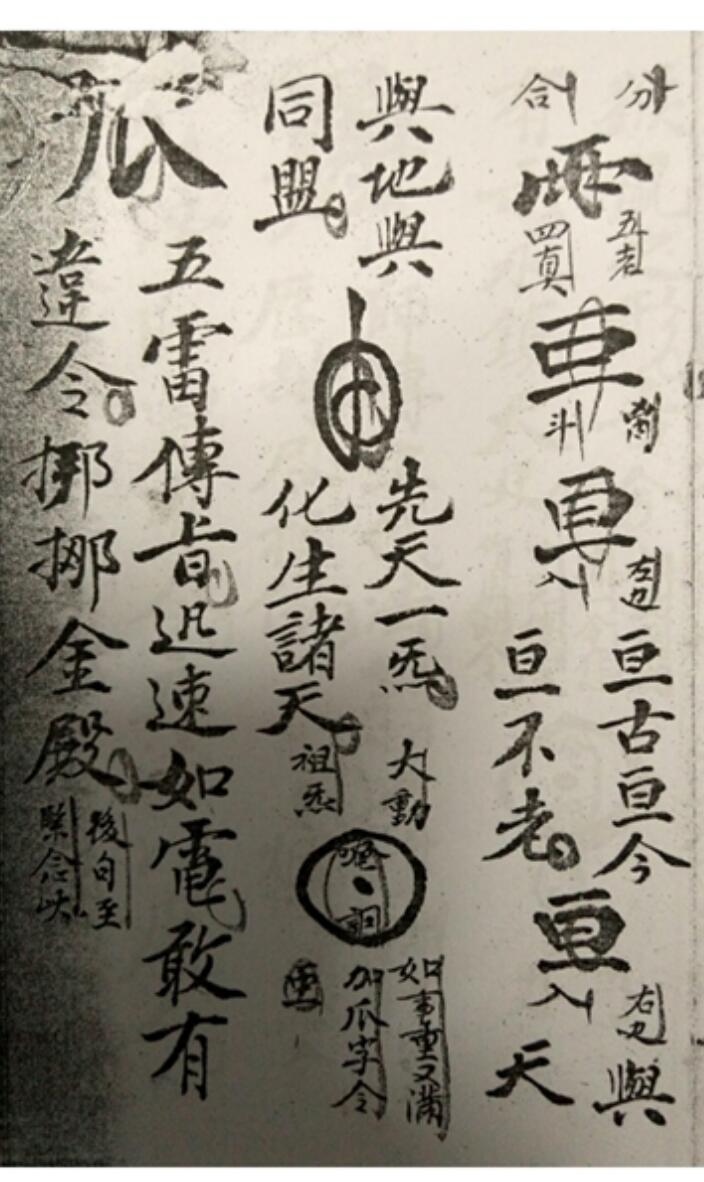 分
合
五老
四真
斗
左
入
亘古亘今
亘不老
亘
右
入
與
天
與地與
同盟
先天一炁
化生諸天
大動
祖炁
如事重又滿
加爪字令
爪
五雷傳旨迅速如電敢有
違令挪挪金殿
後句至
緊念